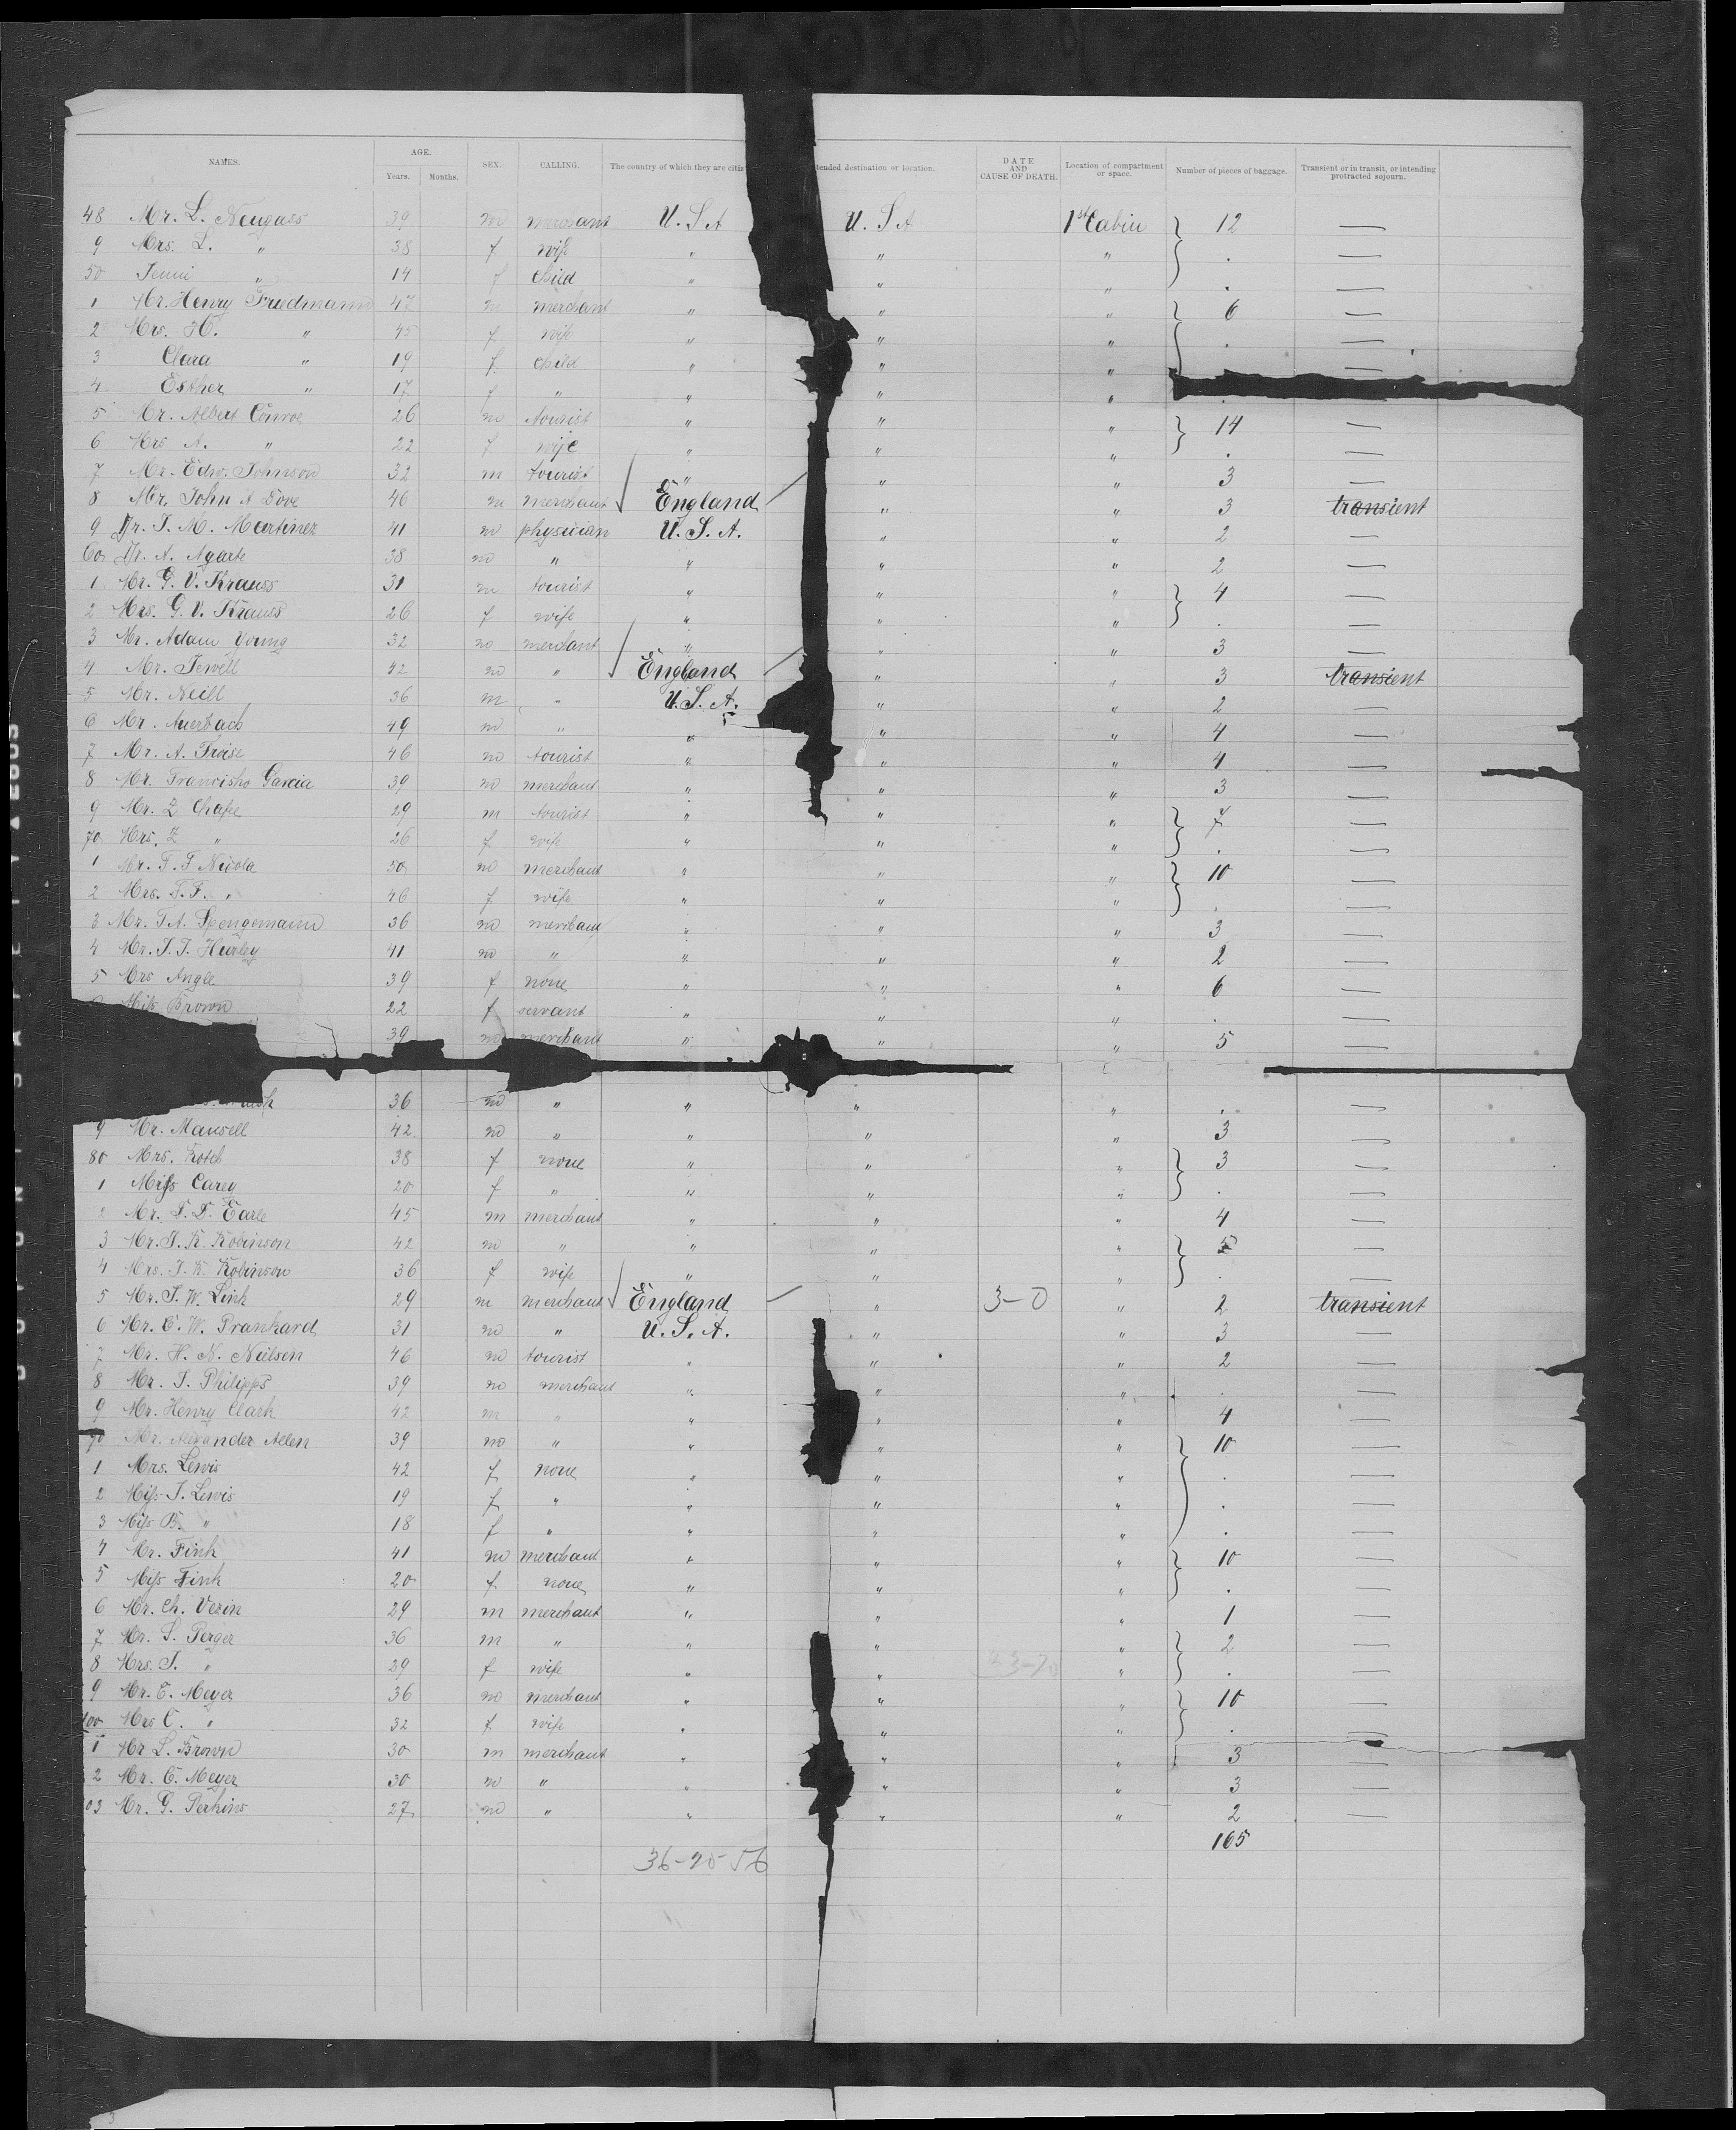 NAMES. AGE. Years. Months. SEX. CALLING. The country of which they are citiz tended destination or location. DATE AND CAUSE OF DEATH. Location of compartment or space. Number of pieces of baggage. Transient or in transit, or intending protracted sojourn.
48 Mr. L. Neugass 39 m merchant U.S.A U.S.A 1st Cabin } 12 —
9 Mrs. L. " 38 f wife " " " } . —
50 Jenni " 14 f child " " " . —
1 Mr. Henry Friedmann 47 m merchant " " " } 6 —
2 Mrs. H. " 45 f wife " " " } . —
3 Clara " 19 f child " " " —
4 Esther " 17 f " " " " .
5 Mr. Albert Conroe 26 m tourist " " " } 14 —
6 Mrs A. " 22 f wife " " " . —
7 Mr. Edw. Johnson 32 m tourist " " " 3 —
8 Mr. John A Dove 46 m merchant England " " 3 transient
9 Dr. J. M. Martinez 41 m physician U.S.A. " " 2 —
60 Dr. A. Agarte 38 m " " " " 2 —
1 Mr. G. V. Krauss 31 m tourist " " " } 4 —
2 Mrs. G. V. Krauss 26 f wife " " " . —
3 Mr. Adam Young 32 m merchant " " " 3 —
4 Mr. Jewell 42 m " England " " 3 transient
5 Mr. Neill 36 m " U.S.A. " " 2 —
6 Mr. Auerbach 49 m " " " " 4 —
7 Mr. A. Froise 46 m tourist " " " 4 —
8 Mr. Francisko Garcia 39 m merchant " " " 3 —
9 Mr. Z Chafee 29 m tourist " " " } 7 —
70 Mrs. Z " 26 f wife " " " . —
1 Mr. F. F Nicola 50 m merchant " " " } 10 —
2 Mrs. F. F. " 46 f wife " " " . —
3 Mr. T.A. Spengemann 36 m merchant " " " 3 —
4 Mr. J. J. Hurley 41 m " " " " 2 —
5 Mrs Angle 39 f none " " " 6 —
Miss Brown 22 f servant " " " . —
39 m merchant " " " 5 —
36 m " " " " . —
9 Mr. Mansell 42 m " " " " 3 —
80 Mrs. Kotch 38 f none " " " } 3 —
1 Miss Carey 20 f " " " " . —
2 Mr. F. D. Earle 45 m merchant " " " 4 —
3 Mr. J. K. Robinson 42 m " " " " } 5 —
4 Mrs. J. K. Robinson 36 f wife " " " . —
5 Mr. J. W. Link 29 m merchant England " 3-0 " 2 transient
6 Mr. C. W. Prankard 31 m " U.S.A. " " 3 —
7 Mr. H. N. Neilsen 46 m tourist " " " 2 —
8 Mr. J. Philipps 39 m merchant " " " . —
9 Mr. Henry Clark 42 m " " " " 4 —
90 Mr. Alexander Allen 39 m " " " " } 10 —
1 Mrs. Lewis 42 f none " " " . —
2 Miss J. Lewis 19 f " " " " . —
3 Miss B. " 18 f " " " " . —
4 Mr. Fink 41 m merchant " " " } 10 —
5 Miss Fink 20 f none " " " . —
6 Mr. Ch. Vezin 29 m merchant " " " 1 —
7 Mr. S. Perger 36 m " " " " } 2 —
8 Mrs. S. " 29 f wife " " " . —
9 Mr. C. Meyer 36 m merchant " " " } 10 —
100 Mrs C. " 32 f wife " " " . —
1 Mr L. Brown 30 m merchant " " " 3 —
2 Mr. C. Meyer 30 m " " " " 3 —
03 Mr. G. Perkins 27 m " " " " 2 —
165
36-20-56